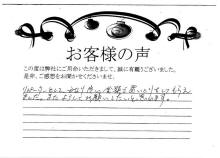 お客様の声
この度は弊社にご用命いただきまして、誠に有難うございました。
是非、ご感想をお聞かせくださいませ。
リピーターとして、かなり高い金額で買いとりをしてもらえ
ました。またよろしくお願いしたいと思います。